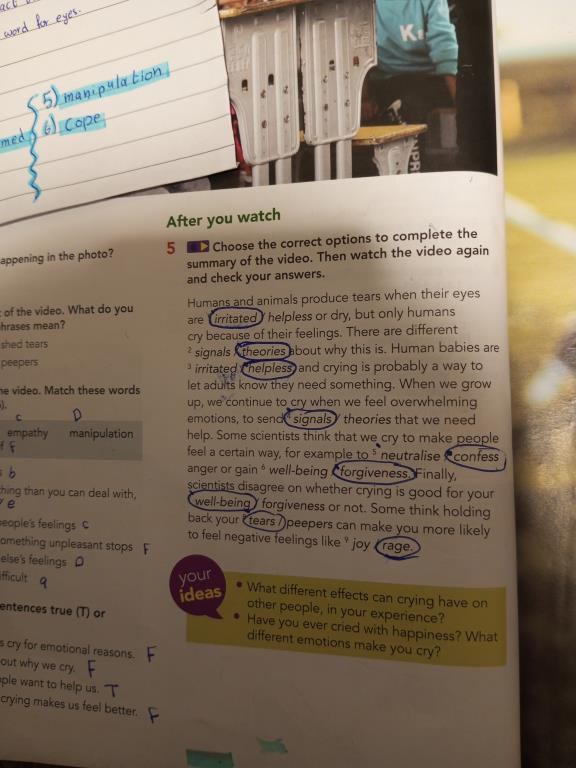 act
word for eyes.
5) manipulation
med 6) cope
K
After you watch
appening in the photo?
5 Choose the correct options to complete the
summary of the video. Then watch the video again
and check your answers.
of the video. What do you
phrases mean?
shed tears
peepers
Humans and animals produce tears when their eyes
are irritated / helpless or dry, but only humans
cry because of their feelings. There are different
2 signals / theories about why this is. Human babies are
3 irritated / helpless and crying is probably a way to
let adults know they need something. When we grow
up, we continue to cry when we feel overwhelming
emotions, to send signals / theories that we need
help. Some scientists think that we cry to make people
feel a certain way, for example to 5 neutralise / confess
anger or gain 6 well-being / forgiveness. Finally,
scientists disagree on whether crying is good for your
well-being / forgiveness or not. Some think holding
back your tears / peepers can make you more likely
to feel negative feelings like 9 joy / rage.
he video. Match these words
c D
empathy manipulation
f
b
thing than you can deal with,
e
people's feelings c
omething unpleasant stops F
else's feelings D
ifficult a
entences true (T) or
s cry for emotional reasons. F
out why we cry. F
ple want to help us. T
crying makes us feel better. F
your
ideas
• What different effects can crying have on
other people, in your experience?
• Have you ever cried with happiness? What
different emotions make you cry?